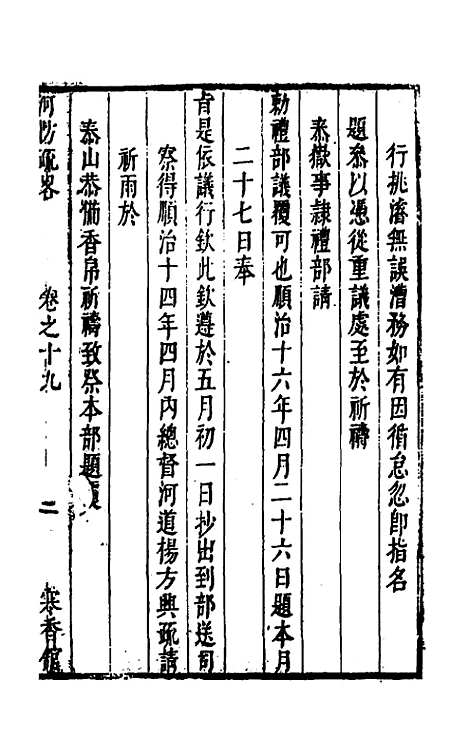 行挑濬無誤漕務如有因循怠忽卽指名
題叅以憑從重議處至於祈禱
泰嶽事隷禮部請
勅禮部議覆可也順治十六年四月二十六日題本月
二十七日奉
旨是依議行欽此欽遵於五月初一日抄出到部送司
察得順治十四年四月內總督河道楊方興疏請
祈雨於
泰山恭備香帛祈禱致祭本部題覆
河防疏畧 卷之十九 二 寒香館